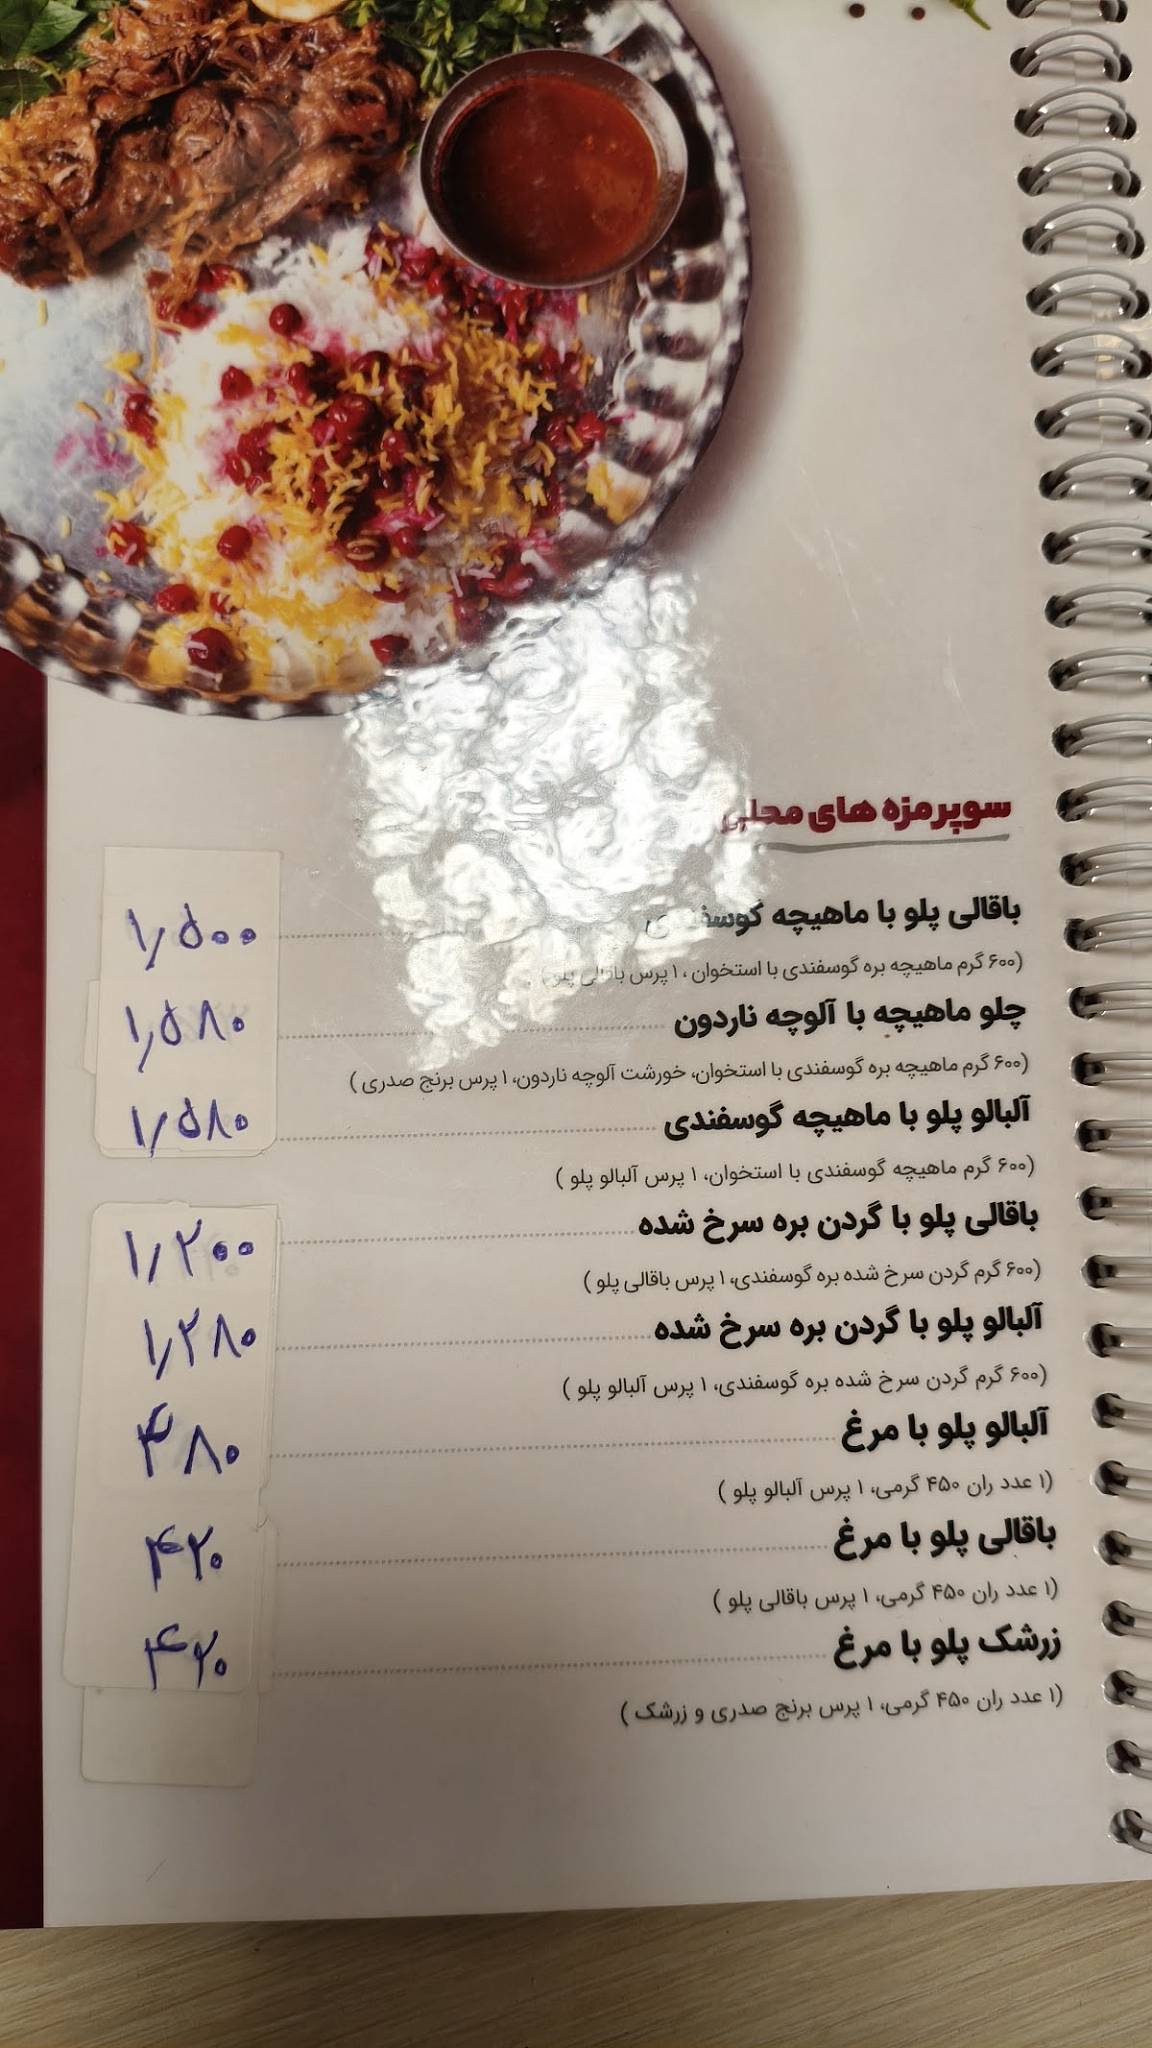 سوپرمزه های محلی
باقالی پلو با ماهیچه گوسفندی ۱٫۵۰۰
(۶۰۰ گرم ماهیچه بره گوسفندی با استخوان ، ۱ پرس باقالی پلو )
چلو ماهیچه با آلوچه ناردون ۱٫۵۸۰
(۶۰۰ گرم ماهیچه بره گوسفندی با استخوان، خورشت آلوچه ناردون، ۱ پرس برنج صدری )
آلبالو پلو با ماهیچه گوسفندی ۱٫۵۸۰
(۶۰۰ گرم ماهیچه گوسفندی با استخوان، ۱ پرس آلبالو پلو )
باقالی پلو با گردن بره سرخ شده ۱٫۲۰۰
(۶۰۰ گرم گردن سرخ شده بره گوسفندی، ۱ پرس باقالی پلو )
آلبالو پلو با گردن بره سرخ شده ۱٫۲۸۰
(۶۰۰ گرم گردن سرخ شده بره گوسفندی، ۱ پرس آلبالو پلو )
آلبالو پلو با مرغ ۴۸۰
(۱ عدد ران ۴۵۰ گرمی، ۱ پرس آلبالو پلو )
باقالی پلو با مرغ ۴۲۰
(۱ عدد ران ۴۵۰ گرمی، ۱ پرس باقالی پلو )
زرشک پلو با مرغ ۴۲۰
(۱ عدد ران ۴۵۰ گرمی، ۱ پرس برنج صدری و زرشک )